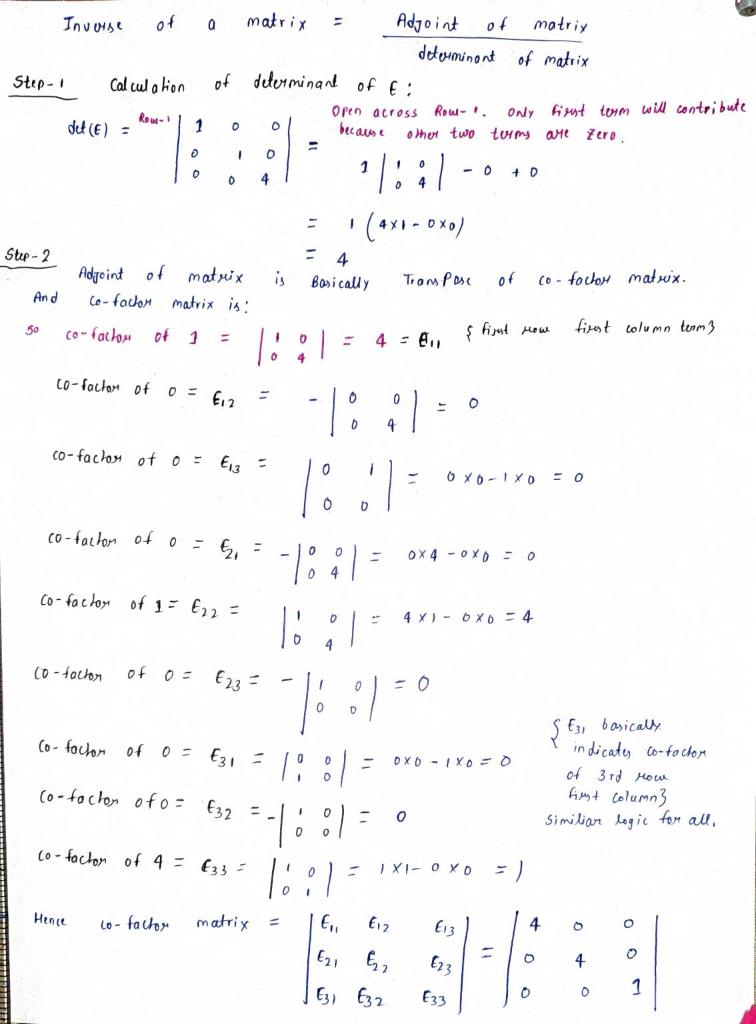 Inverse of a matrix = Adjoint of matrix / determinant of matrix
Step-1 Calculation of determinant of E :
Open across Row-1. Only first term will contribute
because other two terms are zero.
det(E) = Row-1 | 1 0 0 | =
| 0 1 0 |
| 0 0 4 |
1 | 1 0 | - 0 + 0
| 0 4 |
= 1 (4x1 - 0x0)
= 4
Step-2
Adjoint of matrix is Basically Transpose of co-factor matrix.
And co-factor matrix is:
So co-factor of 1 = | 1 0 | = 4 = E11 { first row first column term}
| 0 4 |
co-factor of 0 = E12 = - | 0 0 | = 0
| 0 4 |
co-factor of 0 = E13 = | 0 1 | = 0x0-1x0 = 0
| 0 0 |
co-factor of 0 = E21 = - | 0 0 | = 0x4-0x0 = 0
| 0 4 |
Co-factor of 1 = E22 = | 1 0 | = 4x1- 0x0 = 4
| 0 4 |
co-factor of 0 = E23 = - | 1 0 | = 0
| 0 0 |
Co-factor of 0 = E31 = | 0 0 | = 0x0 - 1x0 = 0
| 1 0 |
Co-factor of 0 = E32 = - | 1 0 | = 0
| 0 0 |
{ E31 basically
indicates co-factor
of 3rd row
first column}
similiar logic for all.
co-factor of 4 = E33 = | 1 0 | = 1x1- 0x0 = 1
| 0 1 |
Hence co-factor matrix = | E11 E12 E13 | = | 4 0 0 |
| E21 E22 E23 | | 0 4 0 |
| E31 E32 E33 | | 0 0 1 |